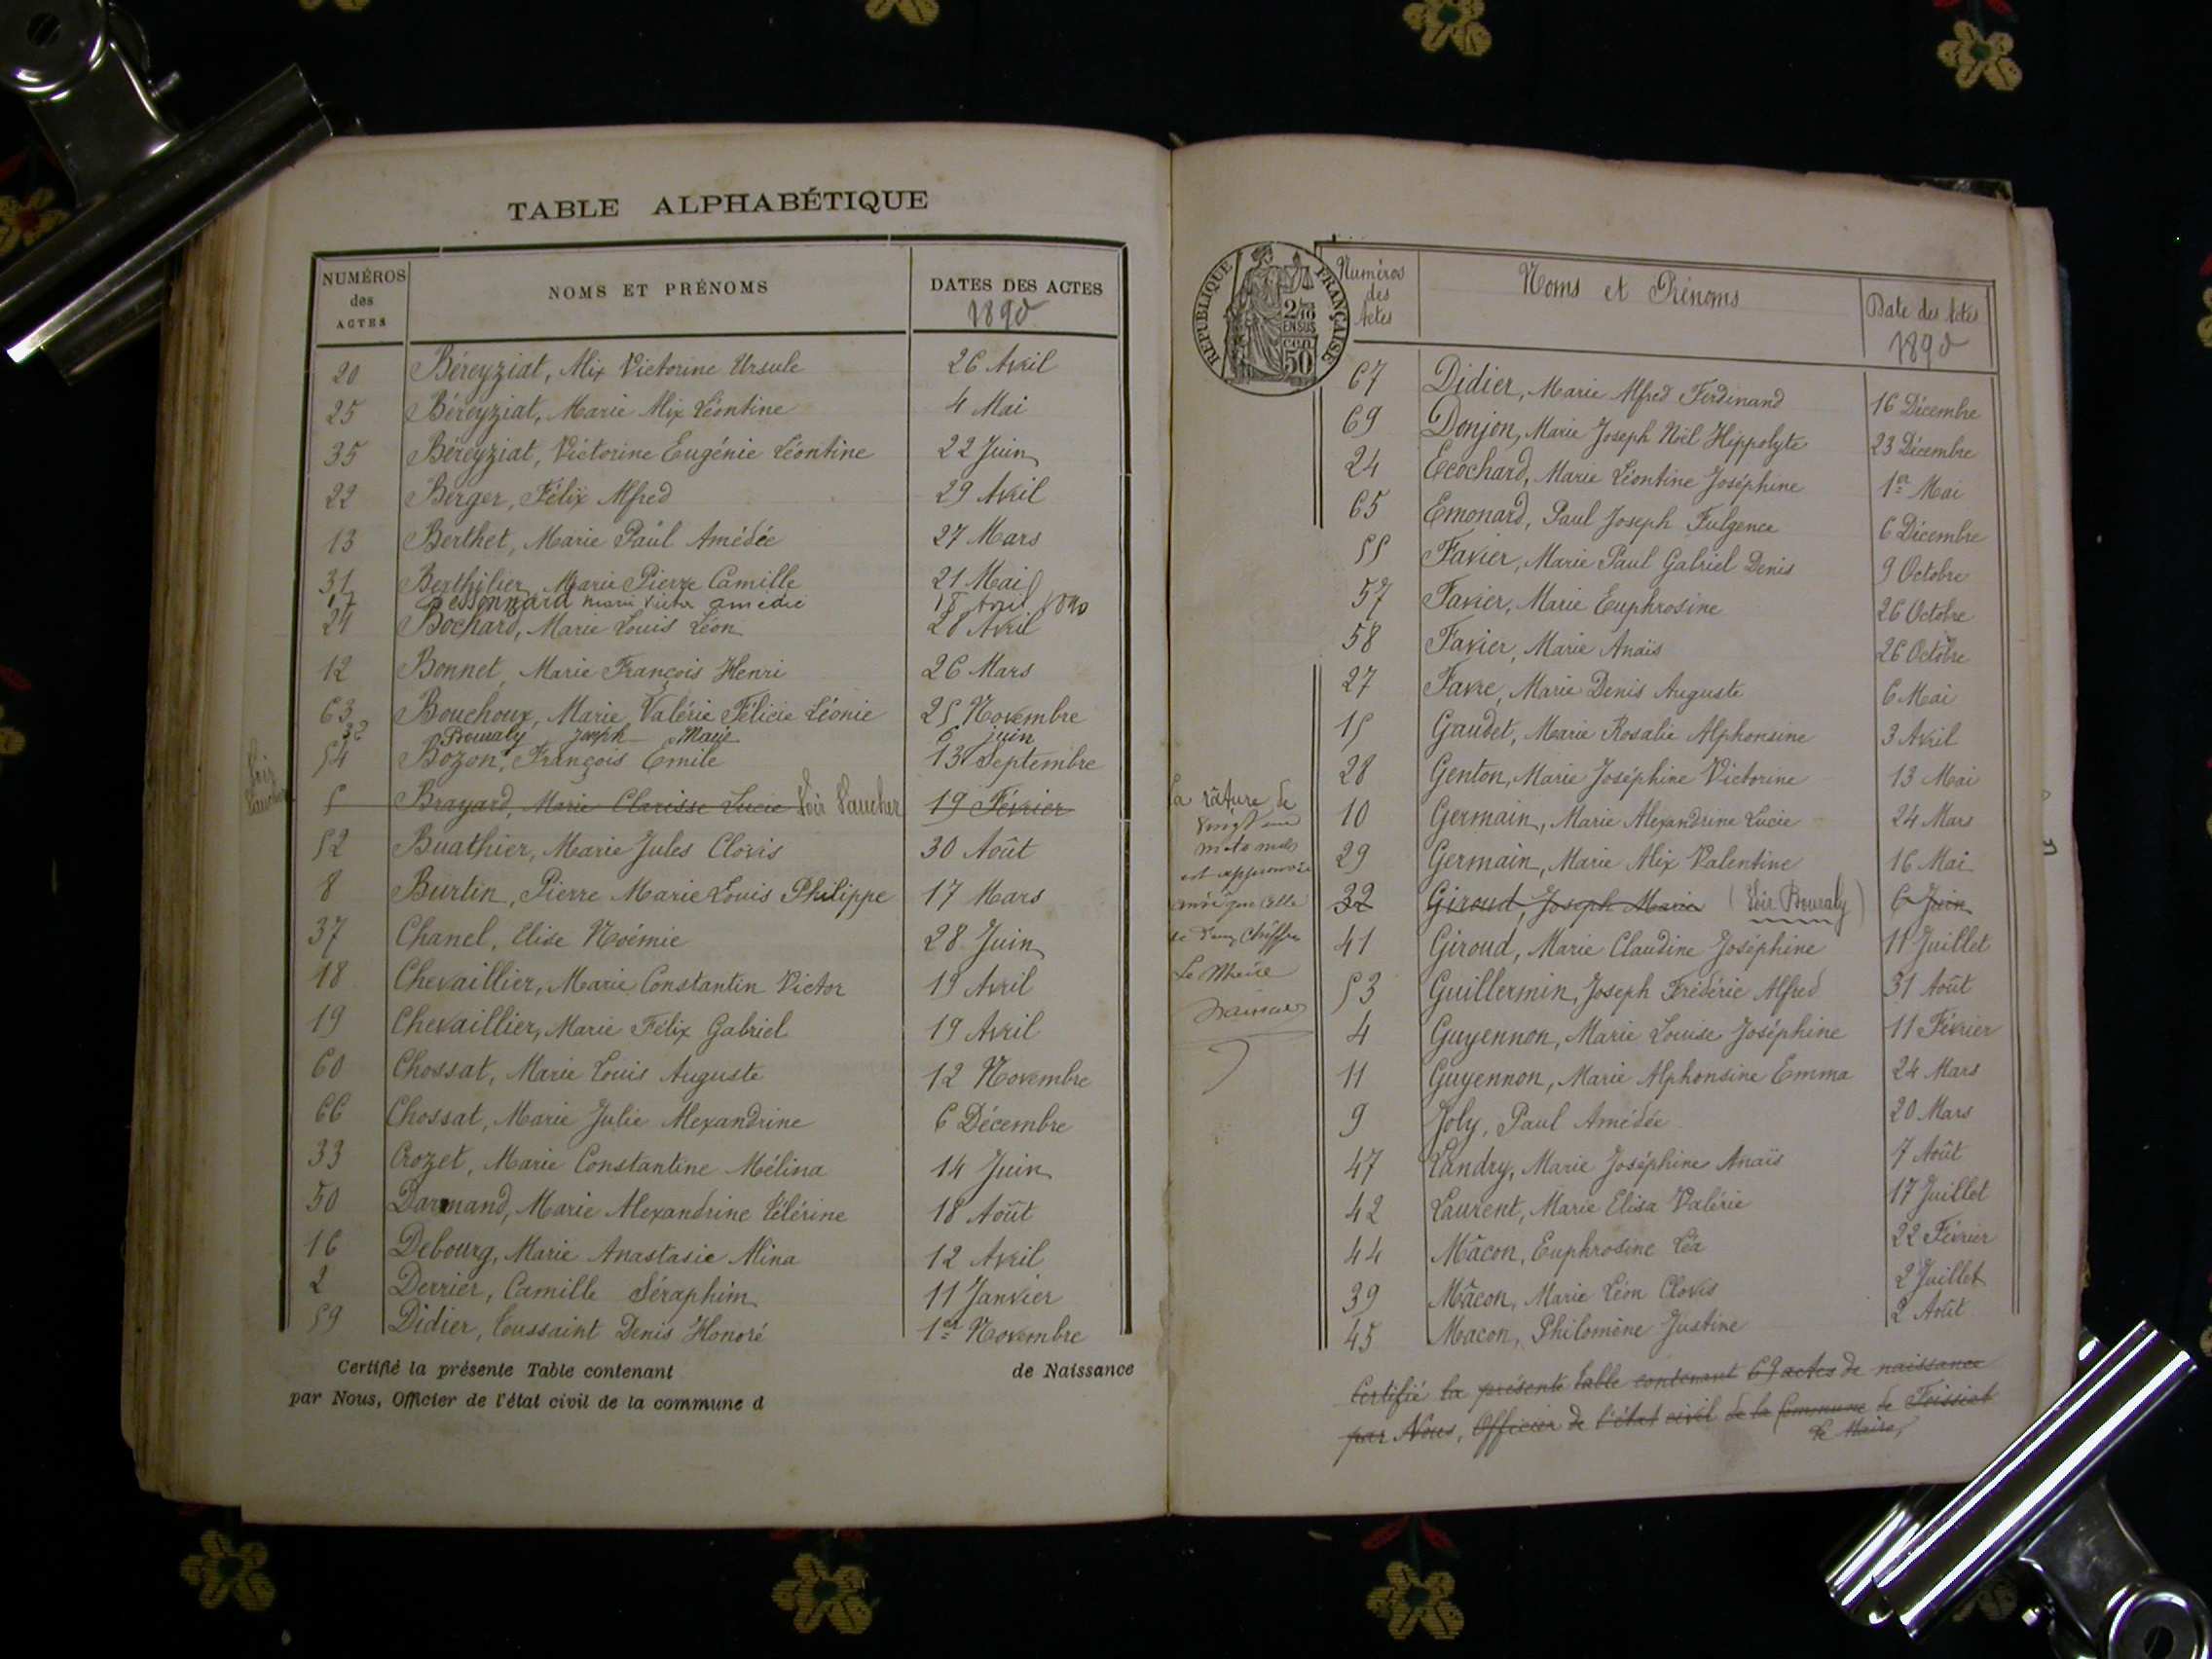 TABLE ALPHABÉTIQUE
NUMÉROS des ACTES NOMS ET PRÉNOMS DATES DES ACTES 1890
20 Béreyziat, Alix Victorine Ursule 26 Avril
25 Béreyziat, Marie Alix Léontine 4 Mai
35 Béreyziat, Victorine Eugénie Léontine 22 Juin
22 Berger, Félix Alfred 29 Avril
13 Berthet, Marie Paul Amédée 27 Mars
31 Berthilier, Marie Pierre Camille 21 Mai
17 Bessonnard marie victor amédée Avril 1890
21 Bochard, Marie Louis Léon 28 Avril
12 Bonnet, Marie François Henri 26 Mars
63 Bouchoux, Marie Valérie Félicie Léonie 25 Novembre
32 Bouraly Joseph Marie 6 juin
54 Bozon, François Emile 13 Septembre
Voir Vaucher
5 Brayard, Marie Clarisse Lucie Voir Vaucher 19 Février
52 Buathier, Marie Jules Clovis 30 Août
8 Burtin, Pierre Marie Louis Philippe 17 Mars
37 Chanel, Elise Noémie 28 Juin
18 Chevaillier, Marie Constantin Victor 19 Avril
19 Chevaillier, Marie Félix Gabriel 19 Avril
60 Chossat, Marie Louis Auguste 12 Novembre
66 Chossat, Marie Julie Alexandrine 6 Décembre
33 Crozet, Marie Constantine Mélina 14 Juin
50 Darmand, Marie Alexandrine Célérine 18 Août
16 Debourg, Marie Anastasie Alina 12 Avril
2 Derrier, Camille Séraphim 11 Janvier
59 Didier, Toussaint Denis Honoré 1er Novembre
Certifié la présente Table contenant de Naissance
par Nous, Officier de l'état civil de la commune d
RÉPUBLIQUE FRANÇAISE
2/10
EN SUS
cen
50
Numéros des Actes Noms et Prénoms Date des Actes 1890
67 Didier, Marie Alfred Ferdinand 16 Décembre
69 Donjon, Marie Joseph Noël Hippolyte 23 Décembre
24 Ecochard, Marie Léontine Joséphine 1er Mai
65 Emonard, Paul Joseph Fulgence 6 Décembre
55 Favier, Marie Paul Gabriel Denis 9 Octobre
57 Favier, Marie Euphrosine 26 Octobre
58 Favier, Marie Anaïs 26 Octobre
27 Favre, Marie Denis Auguste 6 Mai
15 Gaudet, Marie Rosalie Alphonsine 3 Avril
28 Genton, Marie Joséphine Victorine 13 Mai
10 Germain, Marie Alexandrine Lucie 24 Mars
29 Germain, Marie Alix Valentine 16 Mai
32 Giroud, Joseph Marie (Voir Bouraly) 6 Juin
41 Giroud, Marie Claudine Joséphine 11 Juillet
53 Guillermin, Joseph Frédéric Alfred 31 Août
4 Guyennon, Marie Louise Joséphine 11 Février
11 Guyennon, Marie Alphonsine Emma 24 Mars
9 Joly, Paul Amédée 20 Mars
47 Landry, Marie Joséphine Anaïs 7 Août
42 Laurent, Marie Elisa Valérie 17 Juillet
44 Mâcon, Euphrosine Léa 22 Février
39 Mâcon, Marie Léon Clovis 2 Juillet
45 Macon, Philomène Justine 2 Août
La râture de
vingt un
mots nuls
est approuvée
ainsi que celle
de deux chiffres
Le Maire
Certifié la présente table contenant 69 actes de naissance
par Nous, Officier de l'état civil de la Commune de Foissiat
Le Maire,